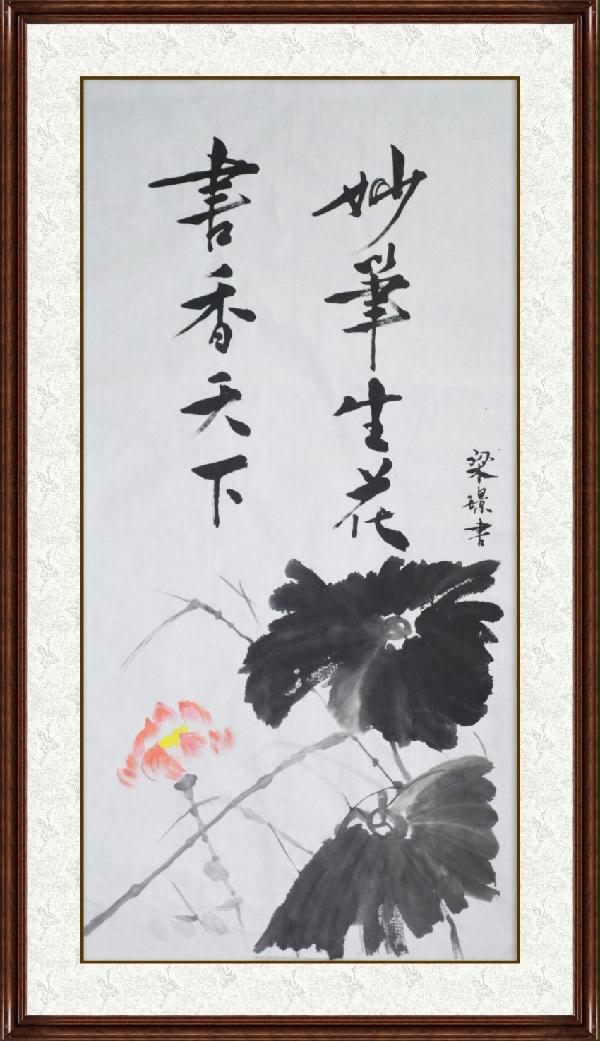 妙筆生花
書香天下
梁璟书